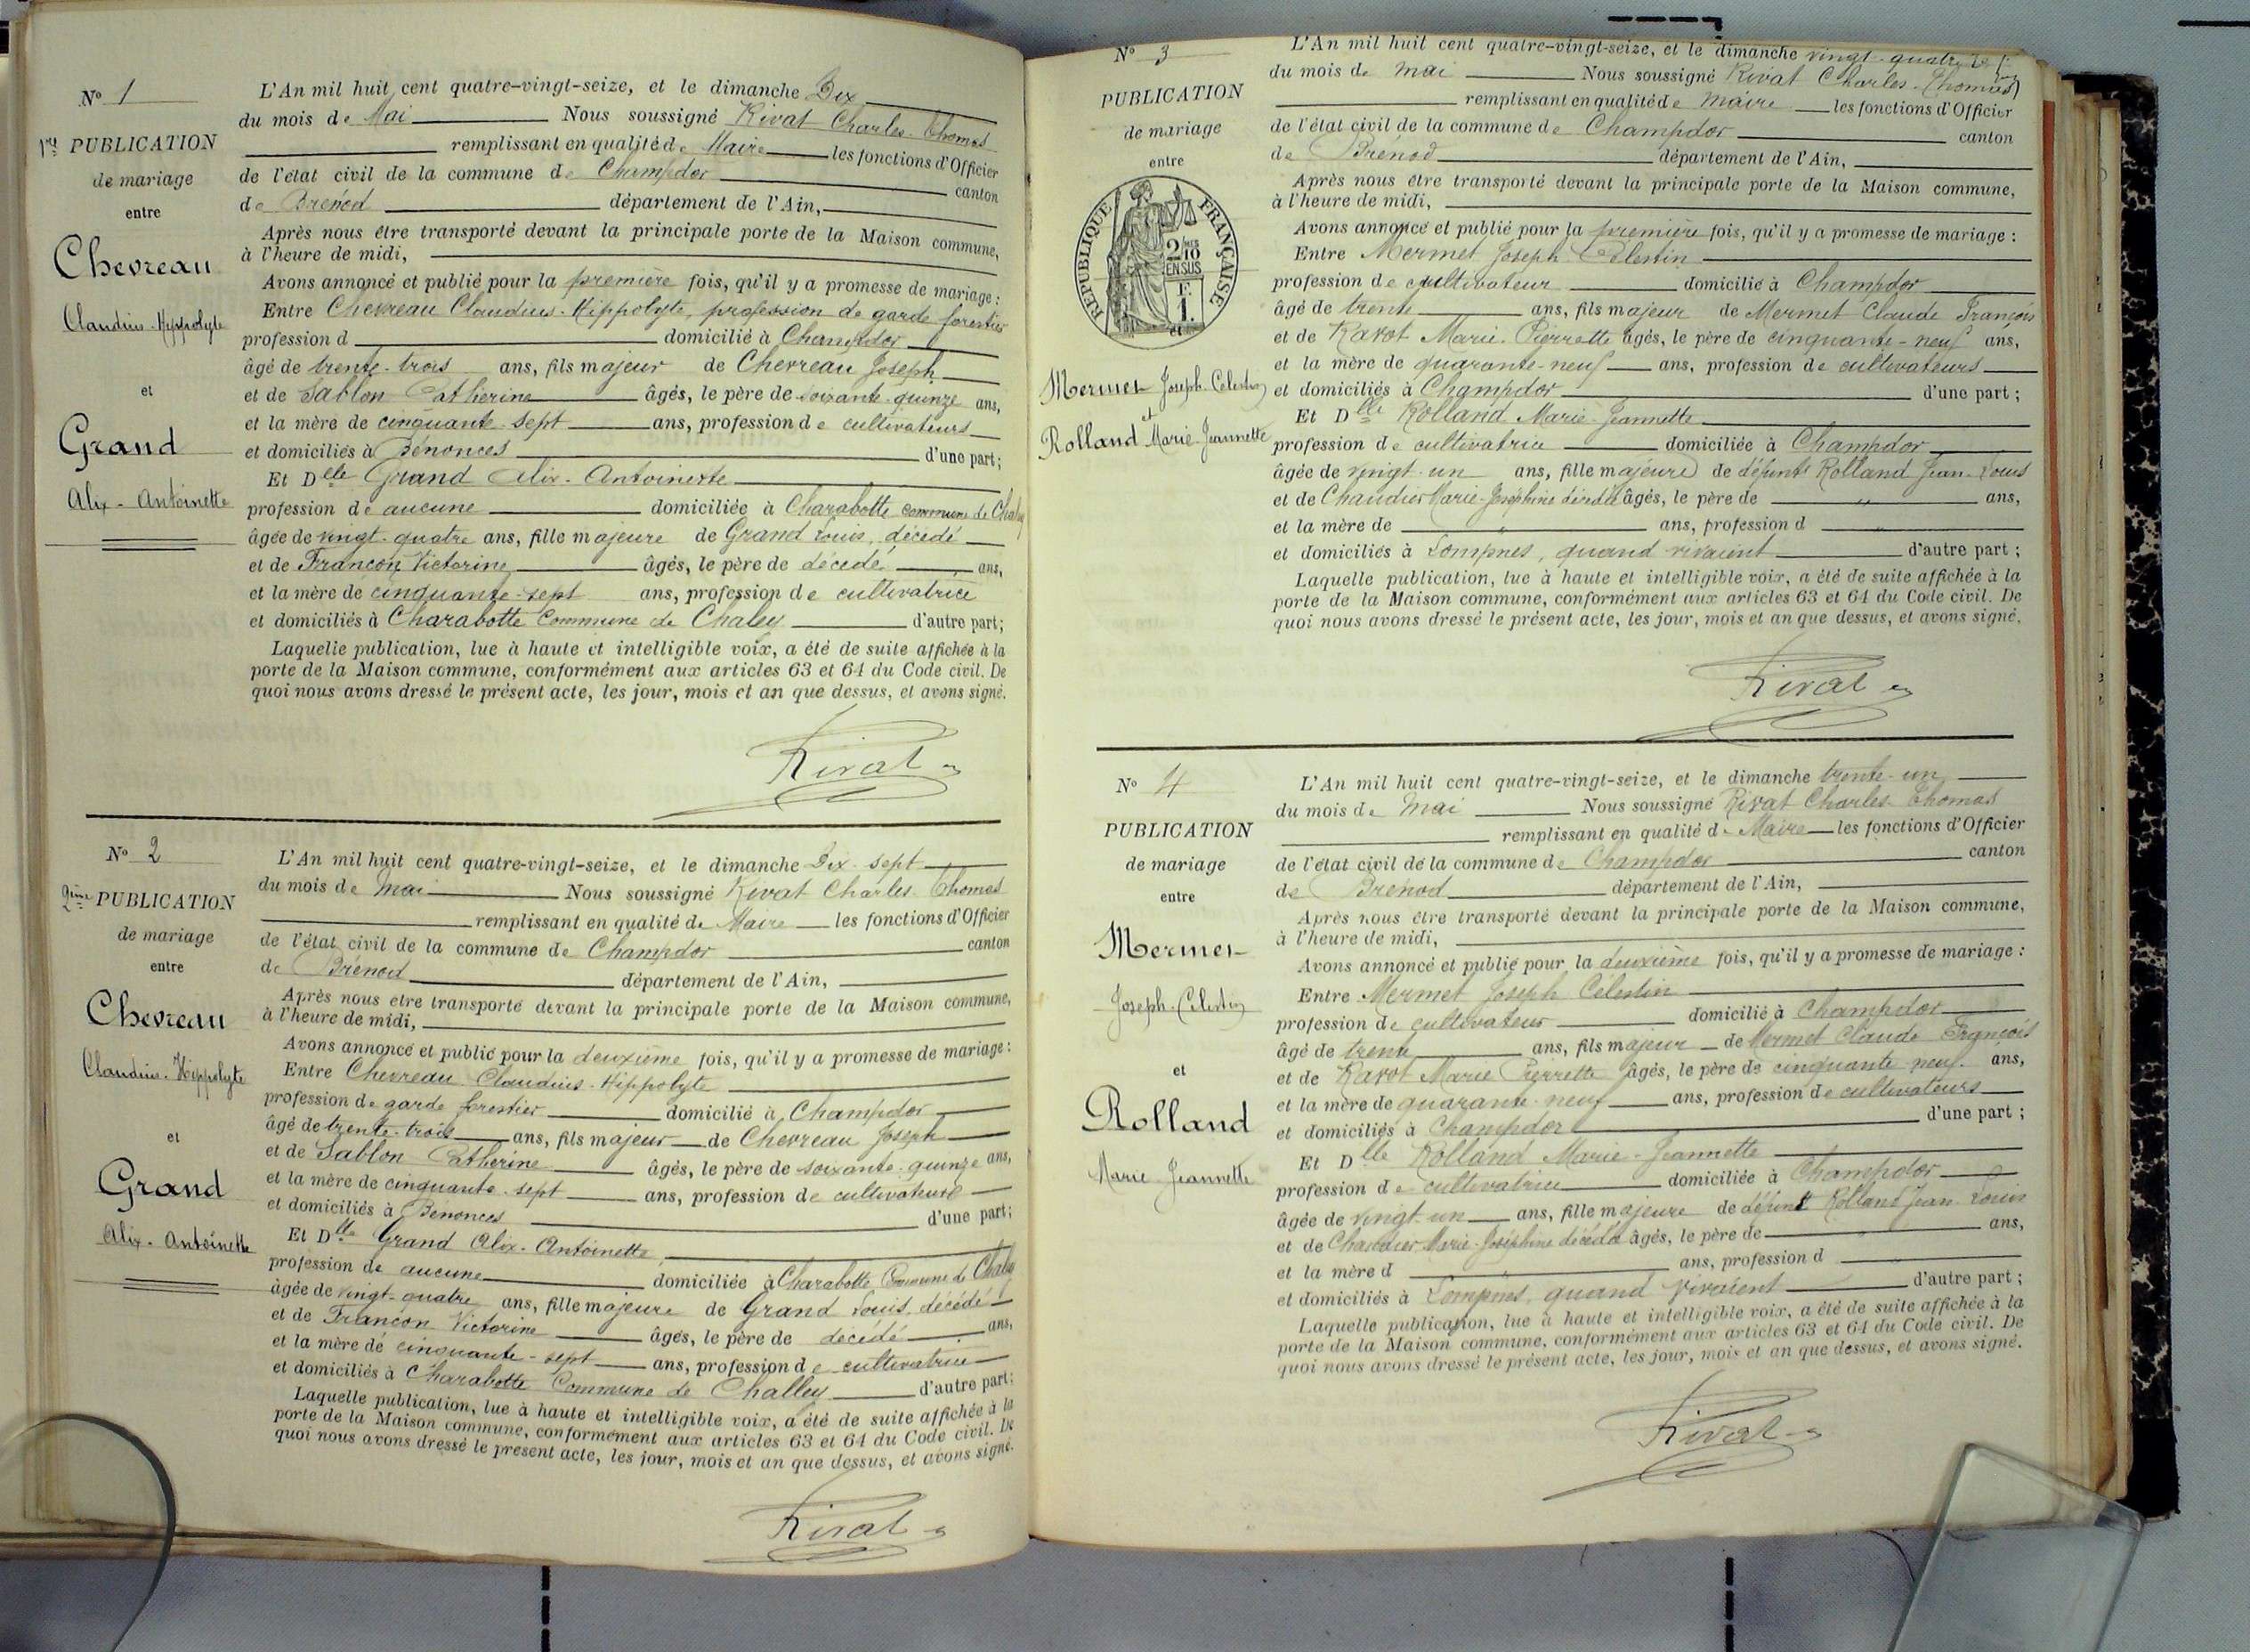 N° 1
1re PUBLICATION
de mariage
entre
Chevreau
Claudius-Hippolyte
et
Grand
Alix-Antoinette
L'An mil huit cent quatre-vingt-seize, et le dimanche Dix
du mois de Mai Nous soussigné Rivat Charles-Thomas
remplissant en qualité de Maire les fonctions d'Officier
de l'état civil de la commune de Champdor canton
de Brénod département de l'Ain,
Après nous être transporté devant la principale porte de la Maison commune,
à l'heure de midi,
Avons annoncé et publié pour la première fois, qu'il y a promesse de mariage :
Entre Chevreau Claudius-Hippolyte, profession de garde forestier
profession d domicilié à Champdor
âgé de trente-trois ans, fils majeur de Chevreau Joseph
et de Sablon Catherine âgés, le père de soixante-quinze ans,
et la mère de cinquante-sept ans, profession de cultivateurs
et domiciliés à Bénonces d'une part ;
Et Delle Grand Alix-Antoinette
profession de aucune domiciliée à Charabotte commune de Chaley
âgée de vingt-quatre ans, fille majeure de Grand Louis, décédé
et de Françon Victorine âgés, le père de décédé ans,
et la mère de cinquante-sept ans, profession de cultivatrice
et domiciliés à Charabotte Commune de Chaley d'autre part ;
Laquelle publication, lue à haute et intelligible voix, a été de suite affichée à la
porte de la Maison commune, conformément aux articles 63 et 64 du Code civil. De
quoi nous avons dressé le présent acte, les jour, mois et an que dessus, et avons signé.
Rivat
N° 2
2ème PUBLICATION
de mariage
entre
Chevreau
Claudius-Hippolyte
et
Grand
Alix-Antoinette
L'An mil huit cent quatre-vingt-seize, et le dimanche Dix-sept
du mois de Mai Nous soussigné Rivat Charles-Thomas
remplissant en qualité de Maire les fonctions d'Officier
de l'état civil de la commune de Champdor canton
de Brénod département de l'Ain,
Après nous être transporté devant la principale porte de la Maison commune,
à l'heure de midi,
Avons annoncé et publié pour la deuxième fois, qu'il y a promesse de mariage :
Entre Chevreau Claudius-Hippolyte
profession de garde forestier domicilié à Champdor
âgé de trente-trois ans, fils majeur de Chevreau Joseph
et de Sablon Catherine âgés, le père de soixante-quinze ans,
et la mère de cinquante-sept ans, profession de cultivateurs
et domiciliés à Benonces d'une part ;
Et Dlle Grand Alix-Antoinette
profession de aucune domiciliée à Charabotte Commune de Chaley
âgée de vingt-quatre ans, fille majeure de Grand Louis, décédé
et de Françon Victorine âgés, le père de décédé ans,
et la mère de cinquante-sept ans, profession de cultivatrice
et domiciliés à Charabotte Commune de Challey d'autre part ;
Laquelle publication, lue à haute et intelligible voix, a été de suite affichée à la
porte de la Maison commune, conformément aux articles 63 et 64 du Code civil. De
quoi nous avons dressé le présent acte, les jour, mois et an que dessus, et avons signé.
Rivat
N° 3
PUBLICATION
de mariage
entre
REPUBLIQUE FRANÇAISE
2/10
EN SUS
F.
1.
Mermet Joseph-Célestin
et
Rolland Marie-Jeannette
L'An mil huit cent quatre-vingt-seize, et le dimanche vingt-quatre
du mois de mai Nous soussigné Rivat Charles-Thomas
remplissant en qualité de maire les fonctions d'Officier
de l'état civil de la commune de Champdor canton
de Brenod département de l'Ain,
Après nous être transporté devant la principale porte de la Maison commune,
à l'heure de midi,
Avons annoncé et publié pour la première fois, qu'il y a promesse de mariage :
Entre Mermet Joseph-Célestin
profession de cultivateur domicilié à Champdor
âgé de trente ans, fils majeur de Mermet Claude François
et de Ravot Marie-Pierrette âgés, le père de cinquante-neuf ans,
et la mère de quarante-neuf ans, profession de cultivateurs
et domiciliés à Champdor d'une part ;
Et Dlle Rolland Marie-Jeannette
profession de cultivatrice domiciliée à Champdor
âgée de vingt-un ans, fille majeure de défunts Rolland Jean-Louis
et de Chaudier Marie-Joséphine décédée âgés, le père de " ans,
et la mère de " ans, profession d "
et domiciliés à Lompnes, quand vivaient d'autre part ;
Laquelle publication, lue à haute et intelligible voix, a été de suite affichée à la
porte de la Maison commune, conformément aux articles 63 et 64 du Code civil. De
quoi nous avons dressé le présent acte, les jour, mois et an que dessus, et avons signé.
Rivat
N° 4
PUBLICATION
de mariage
entre
Mermet
Joseph-Célestin
et
Rolland
Marie-Jeannette
L'An mil huit cent quatre-vingt-seize, et le dimanche trente-un
du mois de Mai Nous soussigné Rivat Charles-Thomas
remplissant en qualité de Maire les fonctions d'Officier
de l'état civil de la commune de Champdor canton
de Brénod département de l'Ain,
Après nous être transporté devant la principale porte de la Maison commune,
à l'heure de midi,
Avons annoncé et publié pour la deuxième fois, qu'il y a promesse de mariage :
Entre Mermet Joseph Célestin
profession de cultivateur domicilié à Champdor
âgé de trente ans, fils majeur de Mermet Claude François
et de Ravot Marie Pierrette âgés, le père de cinquante neuf ans,
et la mère de quarante-neuf ans, profession de cultivateurs
et domiciliés à Champdor d'une part ;
Et Dlle Rolland Marie-Jeannette
profession de cultivatrice domiciliée à Champdor
âgée de vingt-un ans, fille majeure de défunt Rolland Jean-Louis
et de Chaudier Marie-Joséphine décédée âgés, le père de ans,
et la mère d ans, profession d
et domiciliés à Lompnes, quand vivaient d'autre part ;
Laquelle publication, lue à haute et intelligible voix, a été de suite affichée à la
porte de la Maison commune, conformément aux articles 63 et 64 du Code civil. De
quoi nous avons dressé le présent acte, les jour, mois et an que dessus, et avons signé.
Rivat